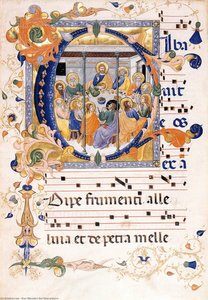 Ciba
uit
eos
ex a
dipe frumenti alle
luia et de petra melle